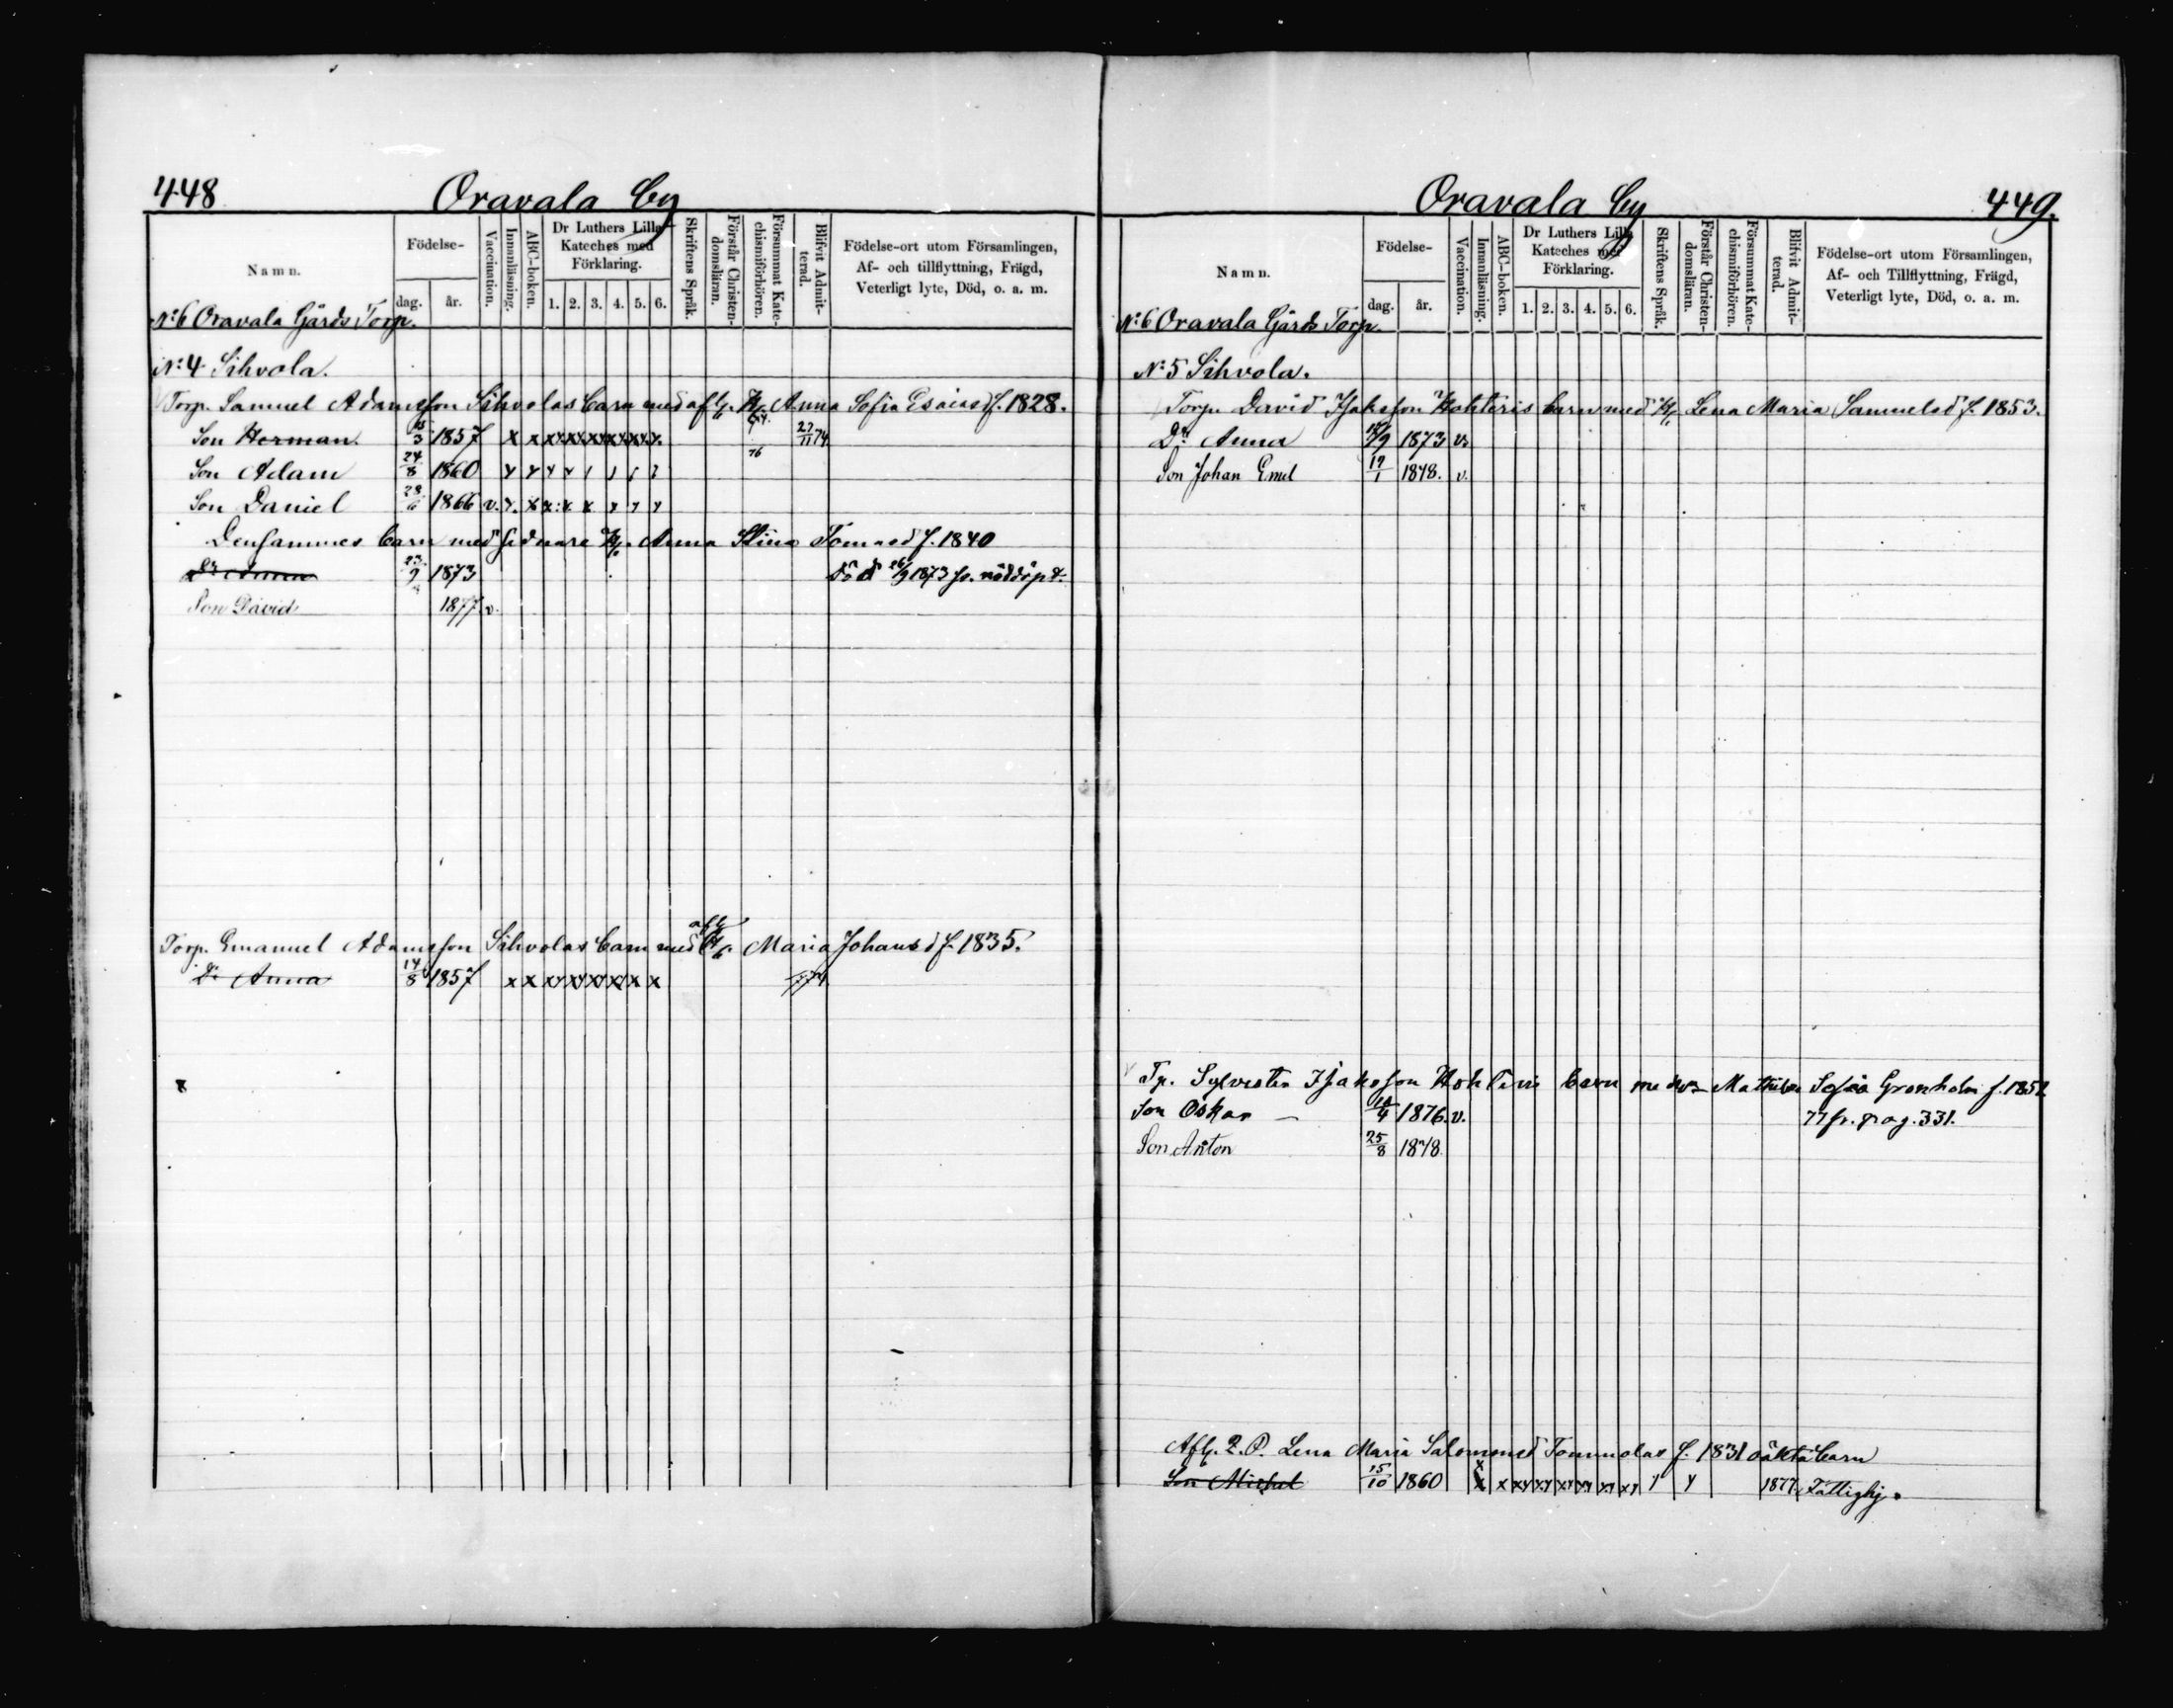 448
Oravala by
Namn.
Födelse-
dag.
år.
Vaccination.
Innanläsning.
ABC-boken.
Dr Luthers Lilla
Kateches med
Förklaring.
1. 2. 3. 4. 5. 6.
Skriftens Språk.
Förstår Christen-
domsläran.
Försummat Kate-
chismiförhören.
Blifvit Admit-
terad.
Födelse-ort utom Församlingen,
Af- och tillflyttning, Frägd,
Veterligt lyte, Död, o. a. m.
No 6 Oravala Gårds Torp.
No 4 Sihvola.
Torp. Samuel Adamsson Sihvolas barn med afl. H. Anna Sofia Esaiasd f. 1828.
Son Herman. 3 1857 x x 27/11 74
76
Son Adam 24/8 1860
Son Daniel 28/6 1866 v.
Densammes barn med sednare H. Anna Stina Tomasd f. 1840
Dr Anna 23/9 1873 Död 26/9 1873 nöddöpt
Son David 1877 v.
Torp. Emanuel Adamsson Sihvolas barn med afl. H. Maria Johansd f. 1835.
Dr Anna 14/8 1857 x x 74
Oravala by
449.
Namn.
Födelse-
dag.
år.
Vaccination.
Innanläsning.
ABC-boken.
Dr Luthers Lilla
Kateches med
Förklaring.
1. 2. 3. 4. 5. 6.
Skriftens Språk.
Förstår Christen-
domsläran.
Försummat Kate-
chismiförhören.
Blifvit Admit-
terad.
Födelse-ort utom Församlingen,
Af- och Tillflyttning, Frägd,
Veterligt lyte, Död, o. a. m.
No 6 Oravala Gårds Torp
No 5 Sihvola.
Torp. David Isaksson Hohteris barn med H. Lena Maria Samuelsd f. 1853.
Dr Anna 1873 v.
Son Johan Emil 19/1 1878. v.
Tp. Sylvester Isaksson Hohteris barn med Sofia Grönholm f. 1852
Son Oskar — 1876. v. 77 fr. pag. 331.
Son Anton 25/8 1878.
Afl. Lena Maria Salomonsd Tommolas f. 1831 oäkta barn
Son Michel 15/10 1860 x x 1877. Fattighj.